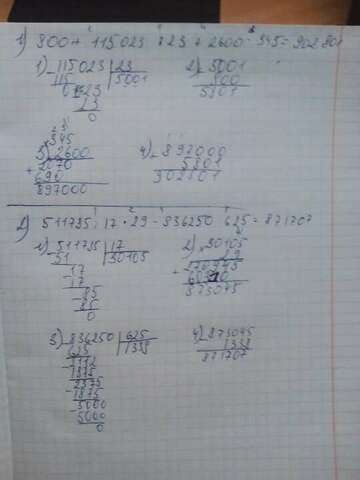 1) 800 + 115023 : 23 + 2600 · 345 = 902 801
1) 115023 | 23
115 | 5001
023
23
0
2) 5001
800
5801
3) 345
2600
2070
+ 690
897000
4) 897000
5801
902801
2) 511785 : 17 · 29 - 836250 : 625 = 871707
1) 511785 | 17
51 | 30105
17
17
85
85
0
2) 30105
29
+ 60210
873045
3) 836250 | 625
625 | 1338
2112
1875
2375
1875
5000
5000
0
4) 873045
1338
871707